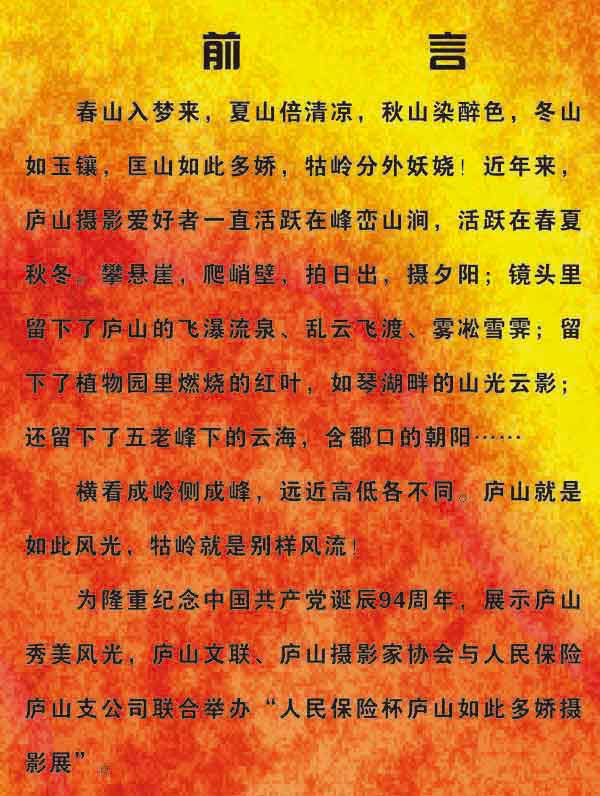 前 言
春山入梦来，夏山倍清凉，秋山染醉色，冬山
如玉镶，匡山如此多娇，牯岭分外妖娆！近年来，
庐山摄影爱好者一直活跃在峰峦山涧，活跃在春夏
秋冬。攀悬崖，爬峭壁，拍日出，摄夕阳；镜头里
留下了庐山的飞瀑流泉、乱云飞渡、雾凇雪霁；留
下了植物园里燃烧的红叶，如琴湖畔的山光云影；
还留下了五老峰下的云海，含鄱口的朝阳……
横看成岭侧成峰，远近高低各不同。庐山就是
如此风光，牯岭就是别样风流！
为隆重纪念中国共产党诞辰94周年，展示庐山
秀美风光，庐山文联、庐山摄影家协会与人民保险
庐山支公司联合举办“人民保险杯庐山如此多娇摄
影展”。